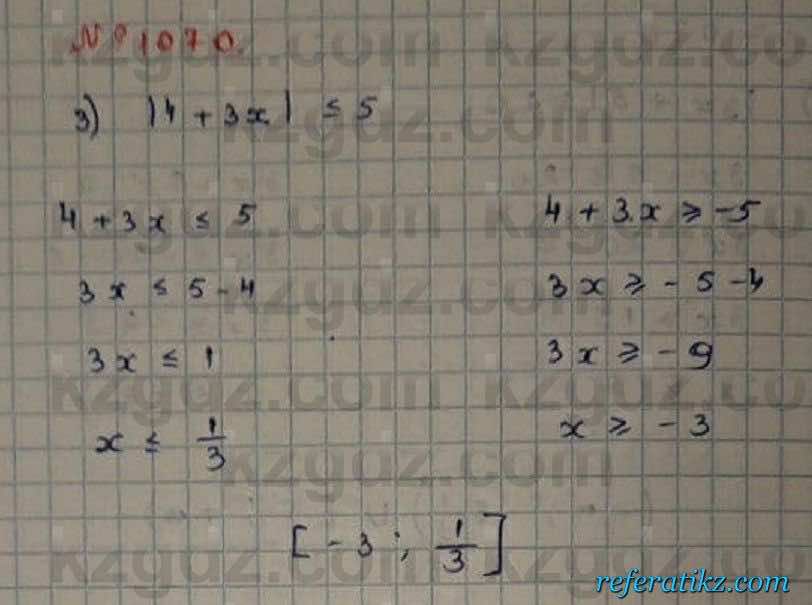 № 1070.
3) |4 + 3x| ≤ 5
4 + 3x ≤ 5 4 + 3x ≥ -5
3x ≤ 5 - 4 3x ≥ - 5 - 4
3x ≤ 1 3x ≥ - 9
x ≤ 1/3 x ≥ - 3
[ - 3 ; 1/3 ]
kzgdz.com
referatikz.com